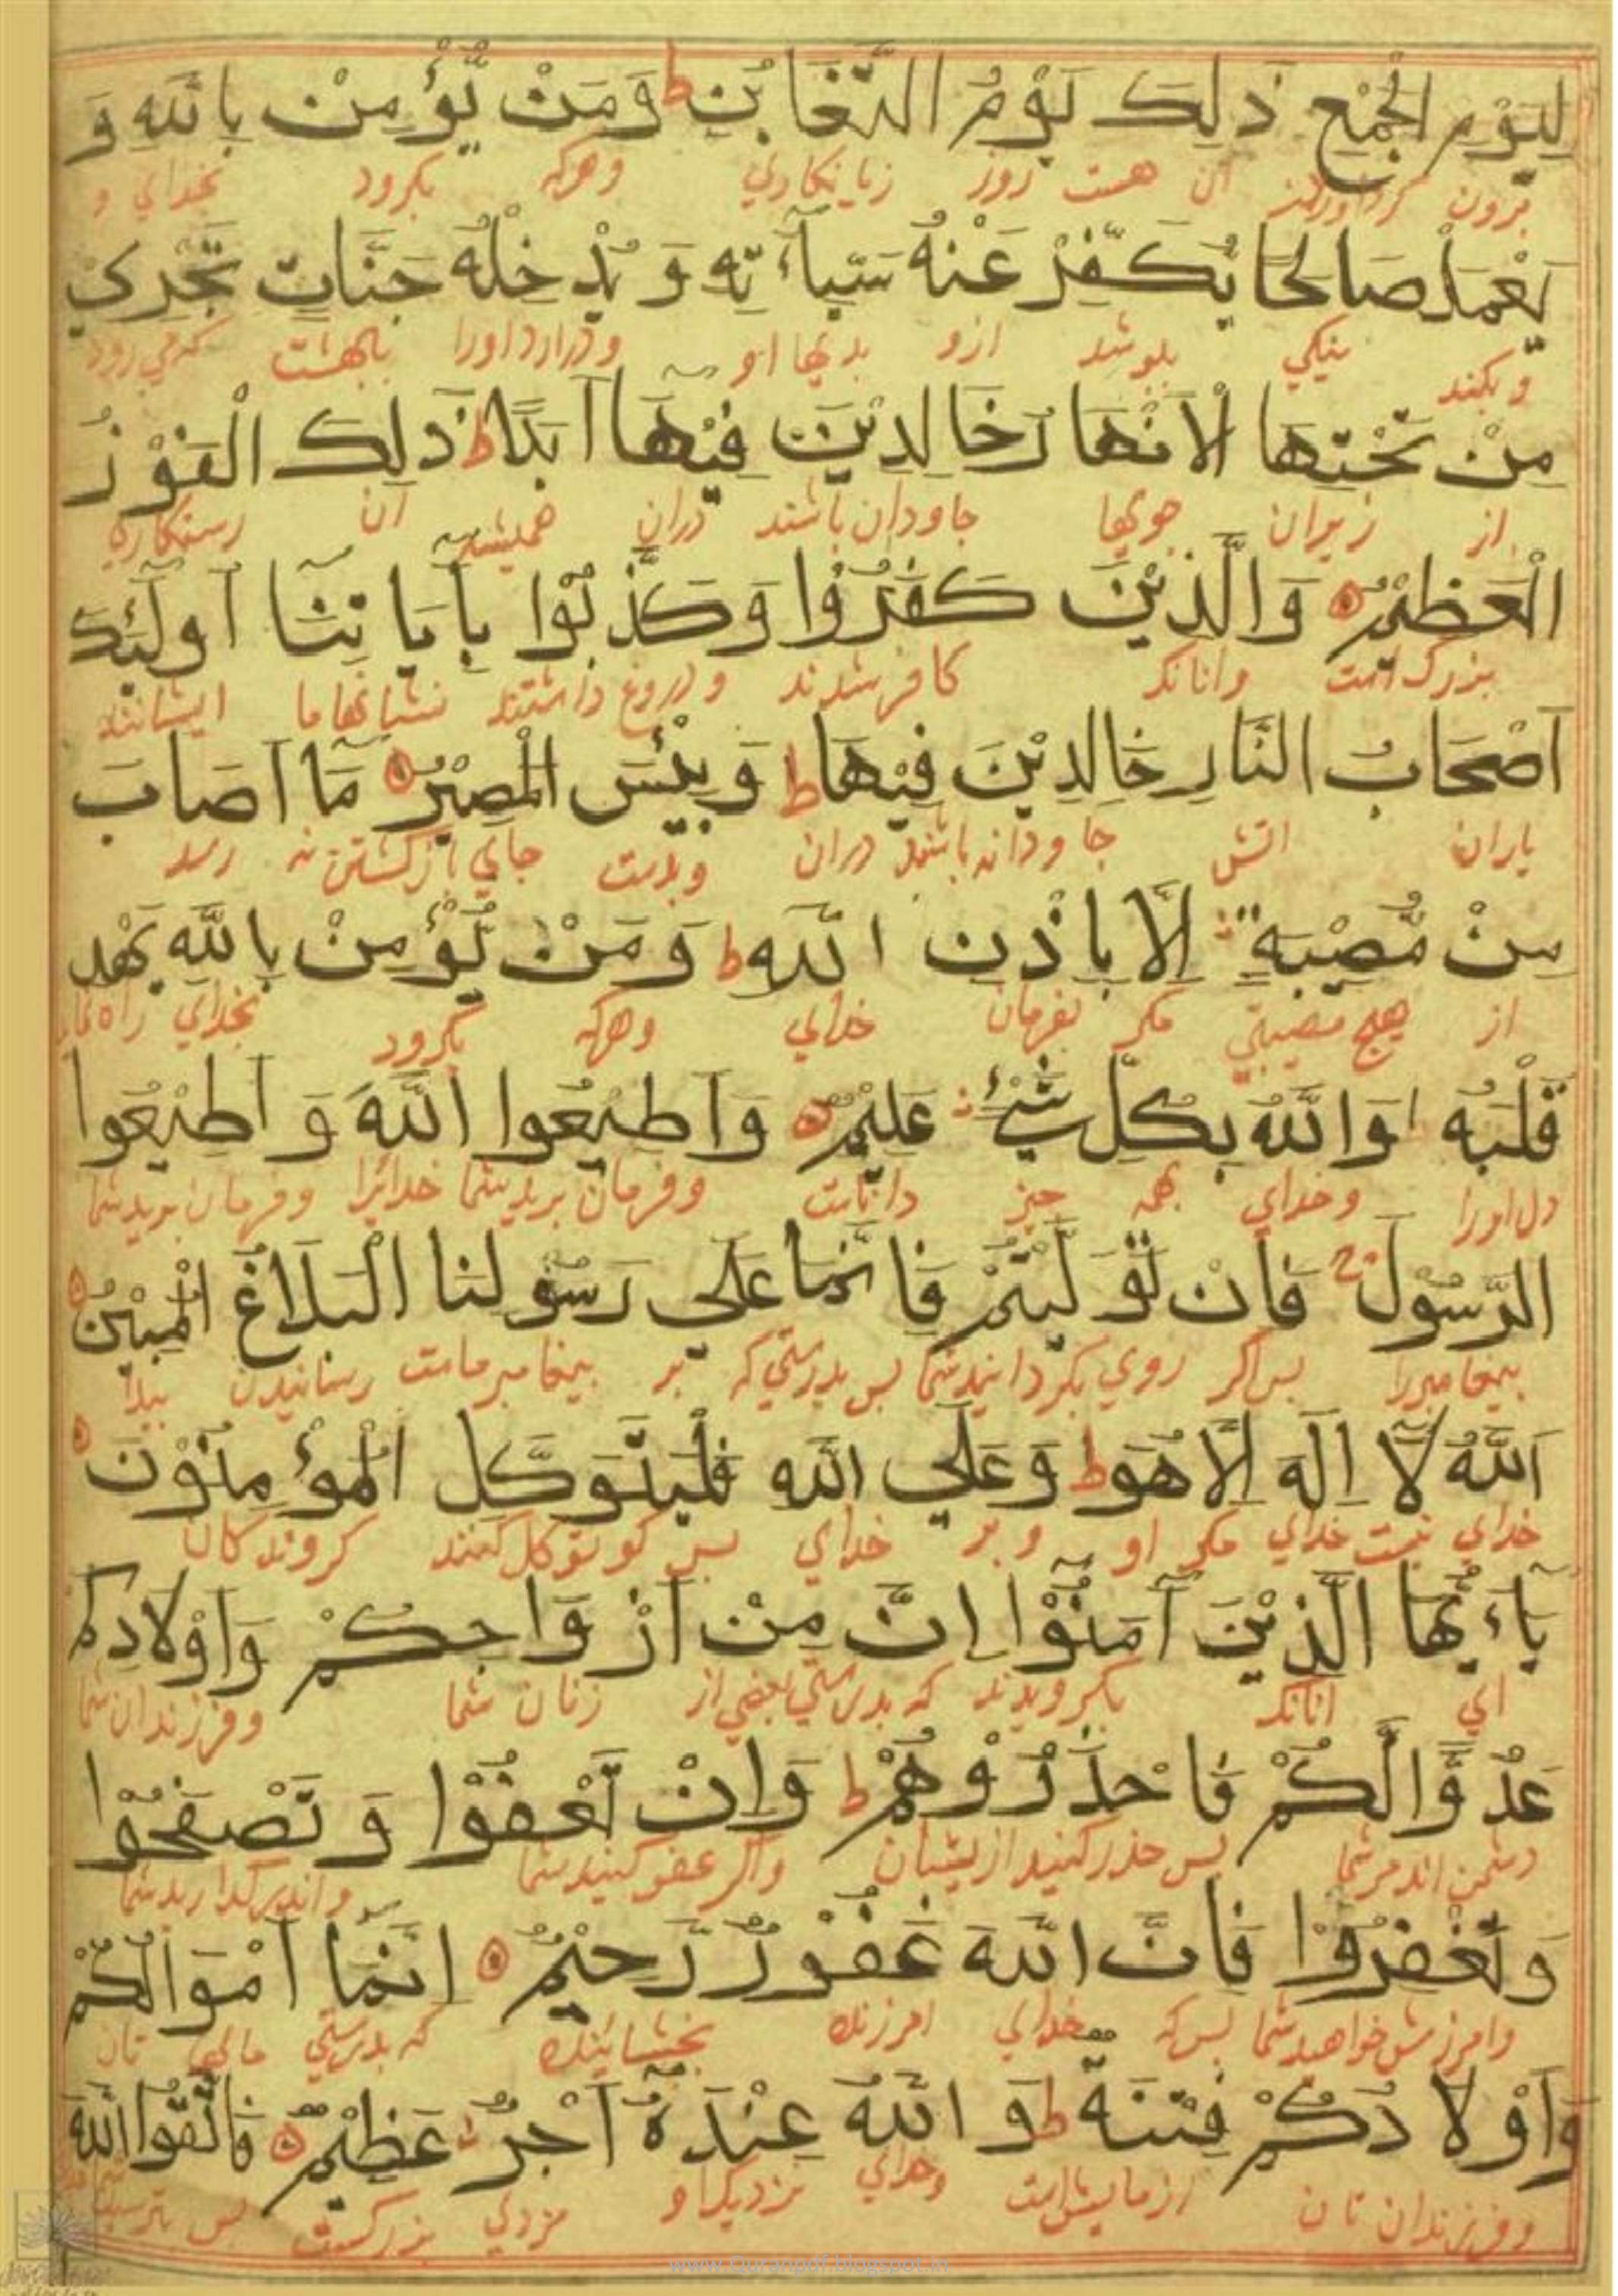 لِيَوْمِ الْجَمْعِ ذٰلِكَ يَوْمُ التَّغَابُنِ ط وَمَنْ يُّؤْمِنْ بِاللّٰهِ وَ
آن هست روز زیانکاری وهرکه بکرود بخدای و
يَعْمَلْ صَالِحًا يُكَفِّرْ عَنْهُ سَيِّاٰتِهٖ وَ يُدْخِلْهُ جَنَّاتٍ تَجْرِي
و بکند نیکی بپوشد ازو بدیها او ودرارد اورا ببهشت که می رود
مِنْ تَحْتِهَا الْاَنْهَارُ خَالِدِيْنَ فِيْهَا اَبَدًا ط ذٰلِكَ الْفَوْزُ
از زیران جویها جاودان باشند دران همیشه آن رستکاری
الْعَظِيْمُ وَالَّذِيْنَ كَفَرُوْا وَكَذَّبُوْا بِاٰيَاتِنَا اُولٰئِكَ
بزرک است وانانکه کافر شدند و دروغ داشتند نشانیها ما ایشانند
اَصْحَابُ النَّارِ خَالِدِيْنَ فِيْهَا ط وَبِئْسَ الْمَصِيْرُ مَا اَصَابَ
یاران اتش جاودانه باشند دران وبدست جای بازکشتن نه رسد
مِنْ مُّصِيْبَةٍ اِلَّا بِاِذْنِ اللّٰهِ ط وَمَنْ يُّؤْمِنْ بِاللّٰهِ يَهْدِ
از هیچ مصیبتی مکر بفرمان خدای وهرکه بکرود بخدای راه نماید
قَلْبَهٗ وَاللّٰهُ بِكُلِّ شَيْءٍ عَلِيْمٌ وَاَطِيْعُوا اللّٰهَ وَ اَطِيْعُوا
دل اورا وخدای بهمه چیز داناست وفرمان برید شما خدایرا وفرمان برید شما
الرَّسُوْلَ فَاِنْ تَوَلَّيْتُمْ فَاِنَّمَا عَلٰى رَسُوْلِنَا الْبَلَاغُ الْمُبِيْنُ
پیغامبررا پس اکر روی بکردانید شما پس بدرستی که بر پیغامبر ماست رسانیدن پیدا
اَللّٰهُ لَا اِلٰهَ اِلَّا هُوَ ط وَعَلَى اللّٰهِ فَلْيَتَوَكَّلِ الْمُؤْمِنُوْنَ
خدای نیست خدای مکر او و بر خدای پس کو توکل کنند کروندکان
يَاءَيُّهَا الَّذِيْنَ اٰمَنُوْا اِنَّ مِنْ اَزْوَاجِكُمْ وَاَوْلَادِكُمْ
ای انانکه بکرویدند که بدرستی بعضی از زنان شما وفرزندان شما
عَدُوًّا لَّكُمْ فَاحْذَرُوْهُمْ ط وَاِنْ تَعْفُوْا وَ تَصْفَحُوْا
دشمن اند مرشما پس حذر کنید ازیشان واکر عفو کنید شما
وَتَغْفِرُوْا فَاِنَّ اللّٰهَ غَفُوْرٌ رَّحِيْمٌ اِنَّمَا اَمْوَالُكُمْ
وامرزش خواهید شما پس که خدای امرزنده بخشاینده که بدرستی مالها تان
وَاَوْلَادُكُمْ فِتْنَةٌ ط وَ اللّٰهُ عِنْدَهٗ اَجْرٌ عَظِيْمٌ فَاتَّقُوا اللّٰهَ
وفرزندان تان ازمایش است وخدای نزدیک او مزدی بزرکست پس بترسید
www.Quranpdf.blogspot.in